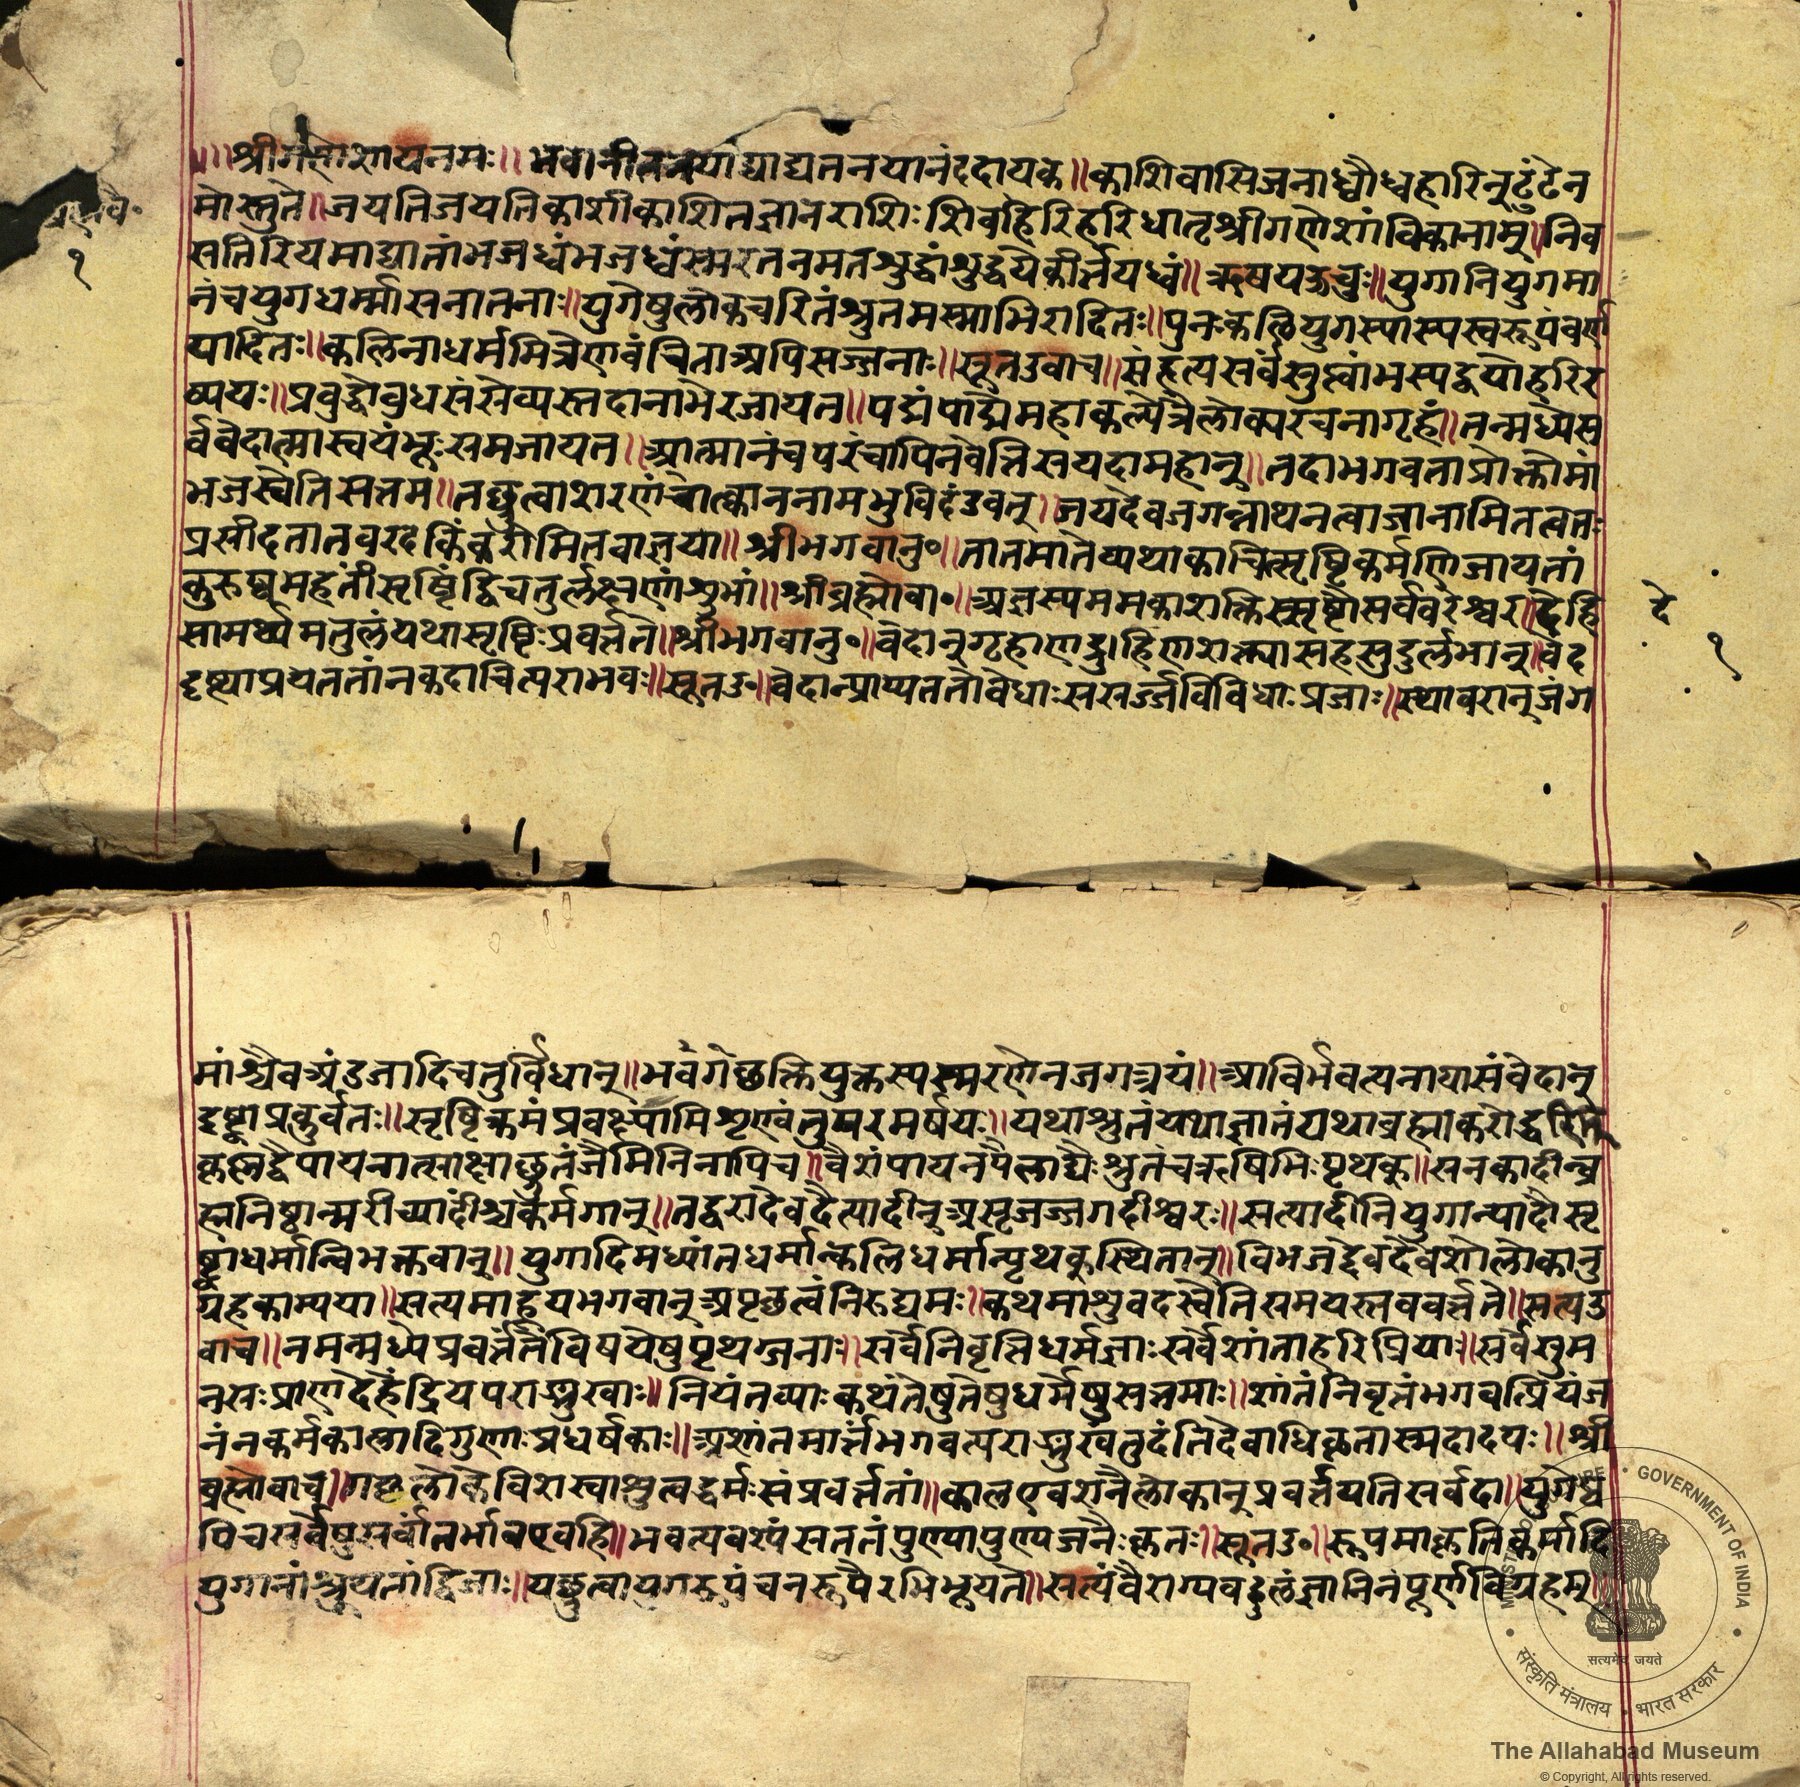 ॥श्रीगणेशायनमः॥ भवानीतनयाद्याद्यतनयानंददायक॥काशिवासिजनाघौघहारिन्ढुंढेन
मोस्तुते॥जयतिजयतिकाशीकाशितज्ञानराशिः शिवहिरिहरिधातृश्रीगणेशांबिकानाम्॥निव
सतिरियमाद्यातांभजध्वंभजध्वंस्मरतनमतशुद्धांशुद्धयैकीर्त्तयध्वं॥ऋषयऊचुः॥युगानियुगमा
नंचयुगधर्म्माःसनातनाः॥युगेषुलोकचरितंश्रुतमस्माभिरादितः॥पुनःकलियुगस्यास्यस्वरूपंवर्ण
यादितः॥कलिनाधर्ममित्रेणवंचिताअपिसज्जनाः॥सूतउवाच॥संहृत्यसर्वंसुप्त्वांभस्यद्वयोहरिर
व्ययः॥प्रबुद्धोबुधसंसेव्यस्तदानाभेरजायत॥पद्मंपाद्मेमहाकल्पेत्रैलोक्यरचनागृहं॥तन्मध्येस
र्ववेदात्मास्वयंभूःसमजायत॥आत्मानंचपरंचापिनवेत्तिसयदामहान्॥तदाभगवताप्रोक्तोमां
भजस्वेतिसत्तम॥तच्छ्रुत्वाशरणंचात्कानननामभुविदंडवत्॥जयदेवजगन्नाथनत्वाजानामितत्वतः
प्रसीदतातवरदकिंकरोमितवाज्ञया॥श्रीभगवानु॰॥तातमातेव्यथाकाचित्सृष्टिकर्मणिजायतां
कुरुष्वमहतींसृष्टिंद्विचतुर्ल्लक्षणांशुभां॥श्रीब्रह्मोवा॰॥अज्ञस्यममकाशक्तिस्सृष्टौसर्ववरेश्वर॥देहि
सामर्थ्यमतुलंयथासृष्टिःप्रवर्त्तते॥श्रीभगवानु॰॥वेदान्गृहाणद्रुहिणशक्त्यासहसुदुर्लभान्॥वेद
दृष्ट्याप्रयततांनकदाचित्पराभवः॥सूतउ॰॥वेदान्प्राप्यततोवेधाःससर्ज्जविविधाःप्रजाः॥स्थावरान्जंग
दे
१
१
मांश्चैवअंडजादिचतुर्विधान्॥भर्वगेच्छक्तियुक्तस्यस्मरणेनजगत्त्रयं॥आविर्भवत्यनायासंवेदान्
दृष्ट्वाप्रकुर्वतः॥सृष्टिक्रमंप्रवक्ष्यामिशृण्वंतुपरमर्षयः॥यथाश्रुतंयथाज्ञातंयथाब्रह्माकरोद्धरिः
कृष्णद्वैपायनात्साक्षाच्छ्रुतंजैमिनिनापिच॥वैशंपायनपैलाद्यैःश्रुतंचऋषिभिःपृथक्॥सनकादीन्ब्र
ह्मनिष्ठान्मरीच्यादींश्चकर्मगान्॥तद्वरादेवदैत्यादीन्असृजज्जगदीश्वरः॥सत्यादीनियुगान्यादौसृ
ष्ट्वाधर्मान्विभक्तवान्॥युगादिमध्यांतधर्मान्कलिधर्मान्पृथक्स्थितान्॥विभजद्देवदेवेशोलोकानु
ग्रहकाम्यया॥सत्यमाहूयभगवान्अपृच्छत्वंनिरुद्यमः॥कथमाशुवदस्वेतिसमयस्तवववर्त्तते॥सत्यउ
वाच॥नमन्मध्येप्रवर्त्तंतेविषयेषुपृथग्जनाः॥सर्वेनिवृत्तिधर्मज्ञाःसर्वेशांताहरिप्रियाः॥सर्वेसुम
नसःप्राणदेहेंद्रियपराङ्मुखाः॥नियंतव्याःकथंतेषुतेषुधर्मेषुसत्तमाः॥शांतंनिवृत्तंभगवत्प्रियंज
नंनकर्मकालादिगुणाःप्रधर्षकाः॥अशांतमार्त्तंभगवत्पराङ्मुखंतुदंतिदेवाधिकृतास्मदादयः॥श्री
ब्रह्मोवाच॥गच्छलोकेविशस्वाशुत्वद्धर्मःसंप्रवर्त्ततां॥कालएवशनैर्लोकान्प्रवर्त्तयतिसर्वदा॥युगेष्व
पिचसर्वेषुसर्वांतर्भावएवहि॥भवत्यवश्यंसततंपुण्यापुण्यजनैःकृतः॥सूतउ॰॥रूपमाकृतिकर्मादि
युगानांश्रूयतांद्विजाः॥यच्छ्रुत्वायुगरूपंचनरूपैरभिभूयते॥सत्यंवैराग्यबहुलंज्ञानिनंपूर्णविग्रहम्॥
MINISTRY OF CULTURE • GOVERNMENT OF INDIA
सत्यमेव जयते
संस्कृति मंत्रालय • भारत सरकार
The Allahabad Museum
© Copyright, All rights reserved.